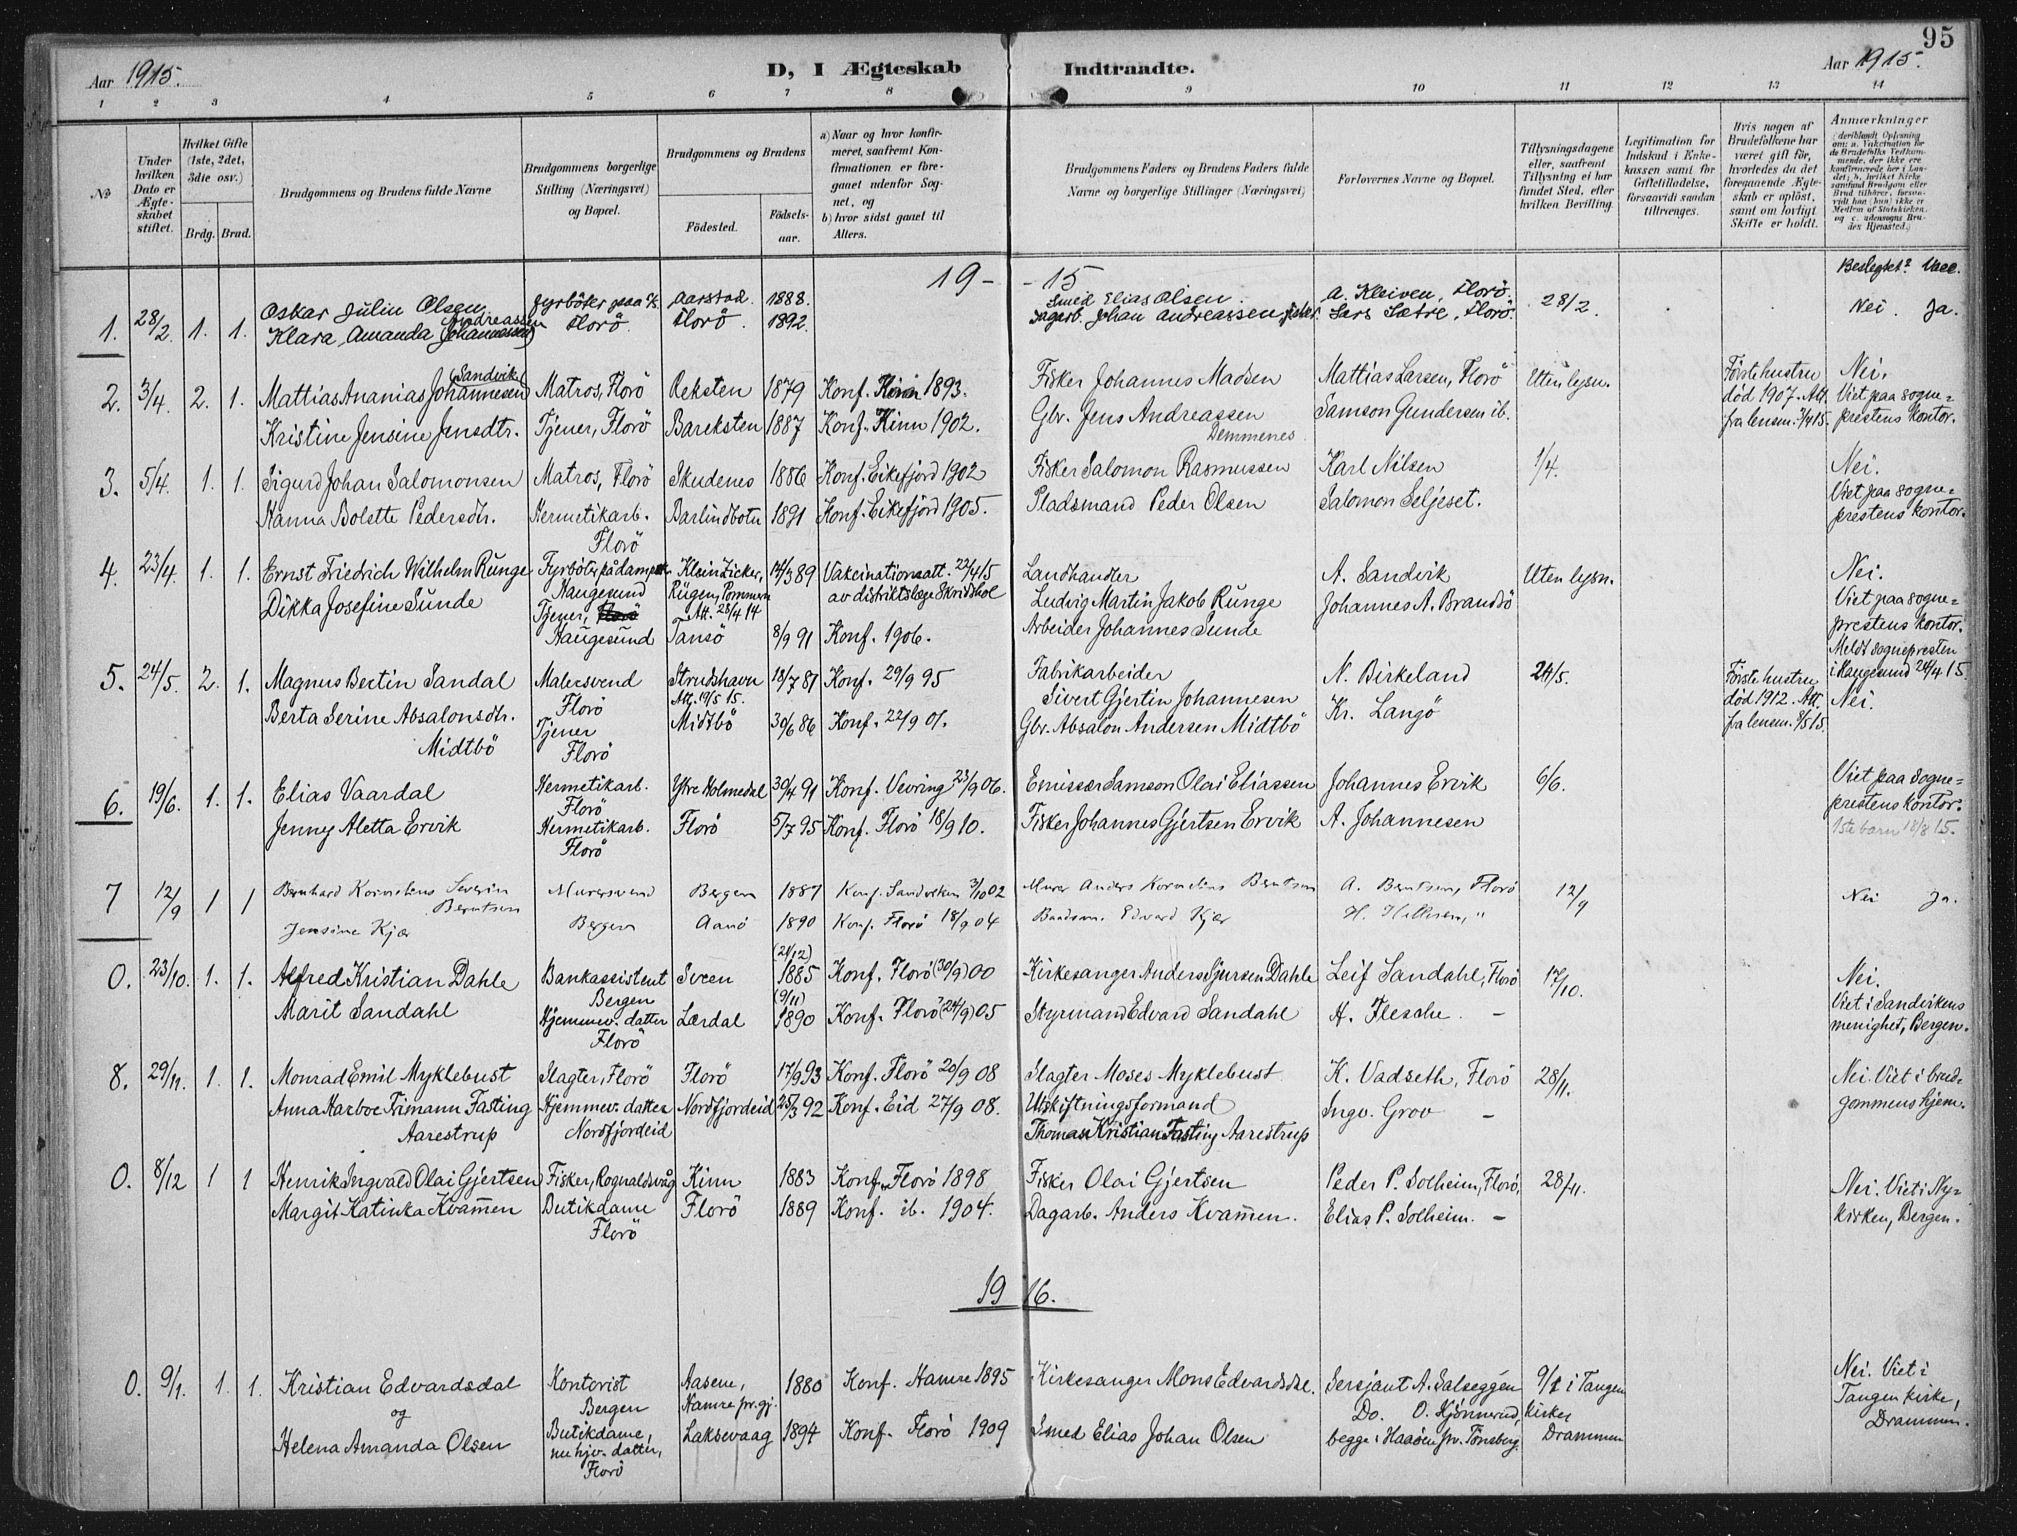 95
Aar 1915.
D, I Ægteskab Indtraadte.
Aar 1915.
1 2 3 4 5 6 7 8 9 10 11 12 13 14
No
Under hvilken Dato er Ægteskabet stiftet.
Hvilket Gifte (1ste, 2det, 3die osv.)
Brdg. Brud.
Brudgommens og Brudens fulde Navne
Brudgommens borgerlige Stilling (Næringsvei) og Bopæl.
Brudgommens og Brudens
Födested.
Födselsaar.
a) Naar og hvor konfirmeret, saafremt Konfirmationen er foregaaet udenfor Sognet, og
b) hvor sidst gaaet til Alters.
Brudgommens Faders og Brudens Faders fulde Navne og borgerlige Stillinger (Næringsvei)
Forlovernes Navne og Bopæl.
Tillysningsdagene eller, saafremt Tillysning ei har fundet Sted, efter hvilken Bevilling.
Legitimation for Indskud i Enkekassen samt for Giftetilladelse, forsaavidt saadan tiltrænges.
Hvis nogen af Brudefolkene har været gift för, hvorledes da det foregaaende Ægteskab er oplöst, samt om lovligt Skifte er holdt.
Anmærkninger
19-
-15
Beslegtet? Vacc.
1. 28/2. 1. 1. Oskar Julin Olsen Fyrböter Aarstad. 1888. Smed Elias Olsen. A. Kleiven, Florö. 28/2. Nei. Ja.
Klara Amanda Andreassen (Johannessen) Florö. Florö. 1892. Dagarb. Johan Andreassen Lars Sætre, Florö.
2. 3/4. 2. 1. Mattias Ananias Johannesen (Sandvik) Matros, Florö Oeksten 1879 Konf. Kinn 1893. Fisker Johannes Madsen Mattias Larsen, Florö Uten lysn. Förste hustru död 1907. Att. fra lensm. 3/4 15. Nei. Viet paa sogneprestens kontor.
Kristine Jensine Jensdtr. Tjener, Florö Bareksten 1887 Konf. Kinn 1902. Gbr. Jens Andreassen Demmenes Samson Gundersen ib.
3. 5/4. 1. 1. Sigurd Johan Salomonsen Matros, Florö Skudenes 1886 Konf. Eikefjord 1902 Fisker Salomon Rasmussen Karl Nilsen 1/4. Nei. Viet paa sogneprestens kontor.
Hanna Bolette Pedersdtr. Hermetikarb. Florö Barlindbotn 1891 Konf. Eikefjord 1905. Pladsmand Peder Olsen Salomon Seljeset.
4. 23/4. 1. 1. Ernst Friedrich Wilhelm Runge Fyrböter på dampsk. Haugesund Klein Zicker, Rügen, Pommern Att. 28/4 14 14/3 89 Vakcinationsatt. 22/4 15 av distriktslæge Skridshol Landhandler Ludvig Martin Jakob Runge A. Sandvik Uten lysn. Nei. Viet paa sogneprestens kontor. Meldt sognepresten i Haugesund 24/4 15.
Dikka Josefine Sunde Tjener, Florö Haugesund Tansö 8/9 91 Konf. 1906. Arbeider Johannes Sunde Johannes A. Brandsö
5. 24/5. 2. 1. Magnus Bertin Sandal Malersvend Florö Strudshavn Att. 19/5 15. 18/7 87 Konf. 29/9 95 Fabrikarbeider Sivert Gjertin Johannesen N. Birkeland 24/5. Förste hustru död 1912. Att. fra lensm. 8/5 15. Nei.
Berta Serine Absalonsdtr. Midtbö Tjener Florö Midtbö 30/6 86 Konf. 22/9 01. Gbr. Absalon Andersen Midtbö Kr. Langö
6. 19/6. 1. 1. Elias Vaardal Hermetikarb. Florö Ytre Holmedal 30/4 91 Konf. Vevring 23/9 06. Emissær Samson Olai Eliassen Johannes Ervik 6/6. Viet paa sogneprestens kontor. 1ste barn 18/8 15.
Jenny Aletta Ervik Hermetikarb. Florö Florö 5/7 95 Konf. Florö 18/9 10. Fisker Johannes Gjertsen Ervik A. Johannesen
7 12/9 1 1 Bernhard Kornelius Severin Berntsen Murersvend Bergen 1887 Konf. Sandviken 3/10 02 Murer Anders Kornelius Berntsen A. Berntsen, Florö 12/9 Nei Ja.
Jensine Kjær Bergen Aanö 1890 Konf. Florö 18/9 04 Baadsm. Edvard Kjær
0. 23/10. 1. 1. Alfred Kristian Dahle Bankassistent Bergen Sveen (21/12) 1885 Konf. Florö (30/9) 00 Kirkesanger Anders Sjursen Dahle Leif Sandahl, Florö 17/10. Nei. Viet i Sandvikens menighet, Bergen.
Marit Sandahl Hjemmev. datter Florö Lærdal (9/11) 1890 Konf. Florö (24/9) 05 Styrmand Edvard Sandahl H. Flesche. -
8. 29/11. 1. 1. Monrad Emil Myklebust Slagter, Florö Florö 17/9 93 Konf. Florö 20/9 08 Slagter Moses Myklebust. K. Vadseth, Florö 28/11. Nei. Viet i brudgommens hjem.
Anna Harboe Frimann Fasting Aarestrup Hjemmev. datter Nordfjordeid Nordfjordeid 25/3 92 Konf. Eid 27/9 08. Utskiftningsformand Thomas Kristian Fasting Aarestrup Ingv. Grov -
0. 8/12 1 1 Henrik Ingvald Olai Gjertsen Fisker, Rognaldsvåg Kinn 1883 Konf. Florö 1898 Fisker Olai Gjertsen Peder P. Solheim, Florö, 28/11. Nei. Viet i Nykirken, Bergen.
Margit Katinka Kvammen Butikdame Florö Florö 1889 Konf. ib. 1904. Dagarb. Anders Kvammen. Elias P. Solheim. -
19 16.
0. 9/1. 1. 1. Kristian Edvardsdal Kontorist Bergen Aasene, Hamre pr.gj. 1880 Konf. Hamre 1895 Kirkesanger Mons Edvardsdal. Sersjant A. Salseggen 9/1 i Tangen kirke Drammen Nei. Viet i Tangen kirke, Drammen.
og
Helena Amanda Olsen Butikdame, nu hjv. datter, Florö Laksevaag 1894 Konf. Florö 1909 Smed Elias Johan Olsen Do. O. Hjönnerud, begge i Haaöen pr. Tönsberg.